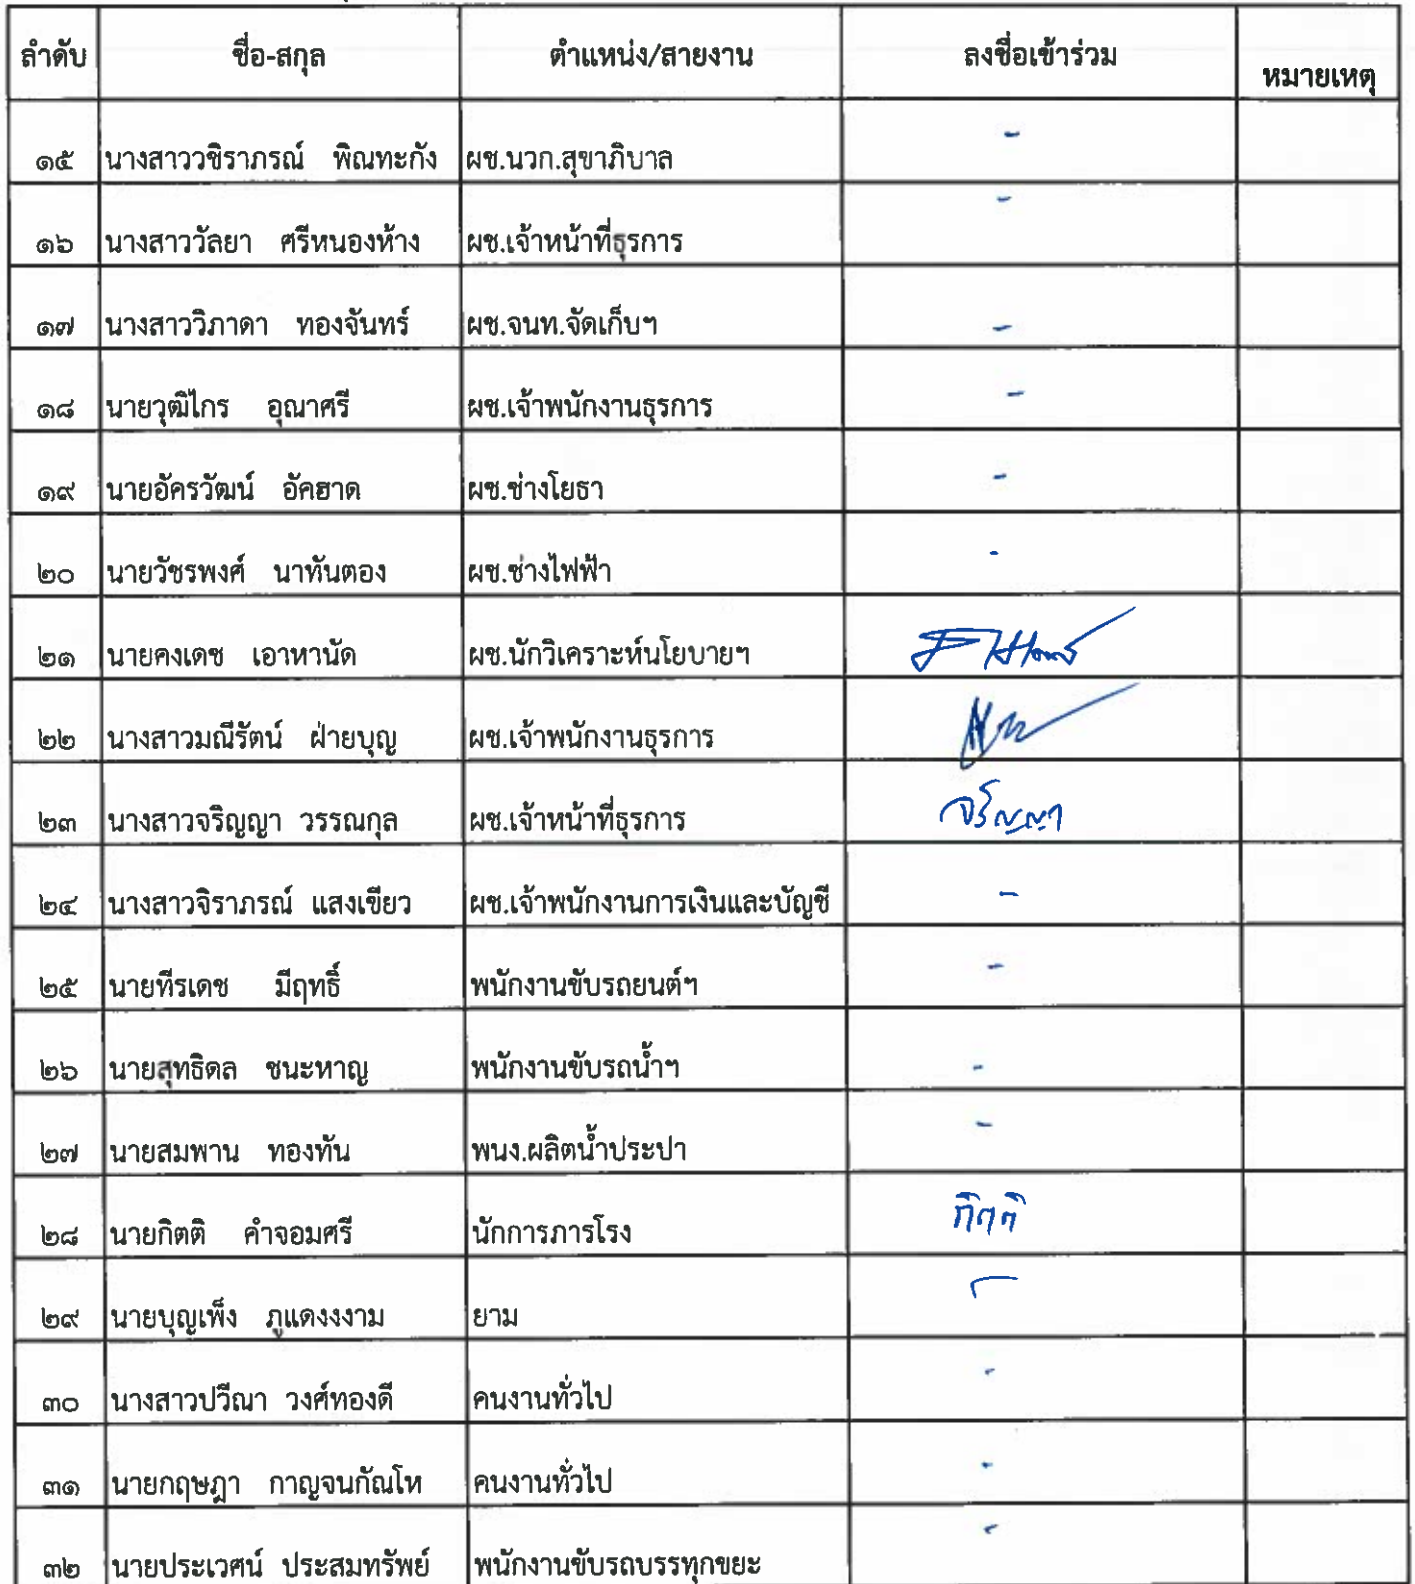 ลำดับ ชื่อ-สกุล ตำแหน่ง/สายงาน ลงชื่อเข้าร่วม หมายเหตุ
๑๕ นางสาววชิราภรณ์ พิณทะกัง ผช.นวก.สุขาภิบาล -
๑๖ นางสาววัลยา ศรีหนองห้าง ผช.เจ้าหน้าที่ธุรการ -
๑๗ นางสาววิภาดา ทองจันทร์ ผช.จนท.จัดเก็บฯ -
๑๘ นายวุฒิไกร อุณาศรี ผช.เจ้าพนักงานธุรการ -
๑๙ นายอัครวัฒน์ อัคฮาด ผช.ช่างโยธา -
๒๐ นายวัชรพงศ์ นาทันตอง ผช.ช่างไฟฟ้า -
๒๑ นายคงเดช เอาหานัด ผช.นักวิเคราะห์นโยบายฯ
๒๒ นางสาวมณีรัตน์ ฝ่ายบุญ ผช.เจ้าพนักงานธุรการ
๒๓ นางสาวจริญญา วรรณกุล ผช.เจ้าหน้าที่ธุรการ จริญญา
๒๔ นางสาวจิราภรณ์ แสงเขียว ผช.เจ้าพนักงานการเงินและบัญชี -
๒๕ นายทีรเดช มีฤทธิ์ พนักงานขับรถยนต์ฯ -
๒๖ นายสุทธิดล ชนะหาญ พนักงานขับรถน้ำฯ -
๒๗ นายสมพาน ทองทัน พนง.ผลิตน้ำประปา -
๒๘ นายกิตติ คำจอมศรี นักการภารโรง กิตติ
๒๙ นายบุญเพ็ง ภูแดงงงาม ยาม -
๓๐ นางสาวปวีณา วงศ์ทองดี คนงานทั่วไป -
๓๑ นายกฤษฎา กาญจนกัณโห คนงานทั่วไป -
๓๒ นายประเวศน์ ประสมทรัพย์ พนักงานขับรถบรรทุกขยะ -